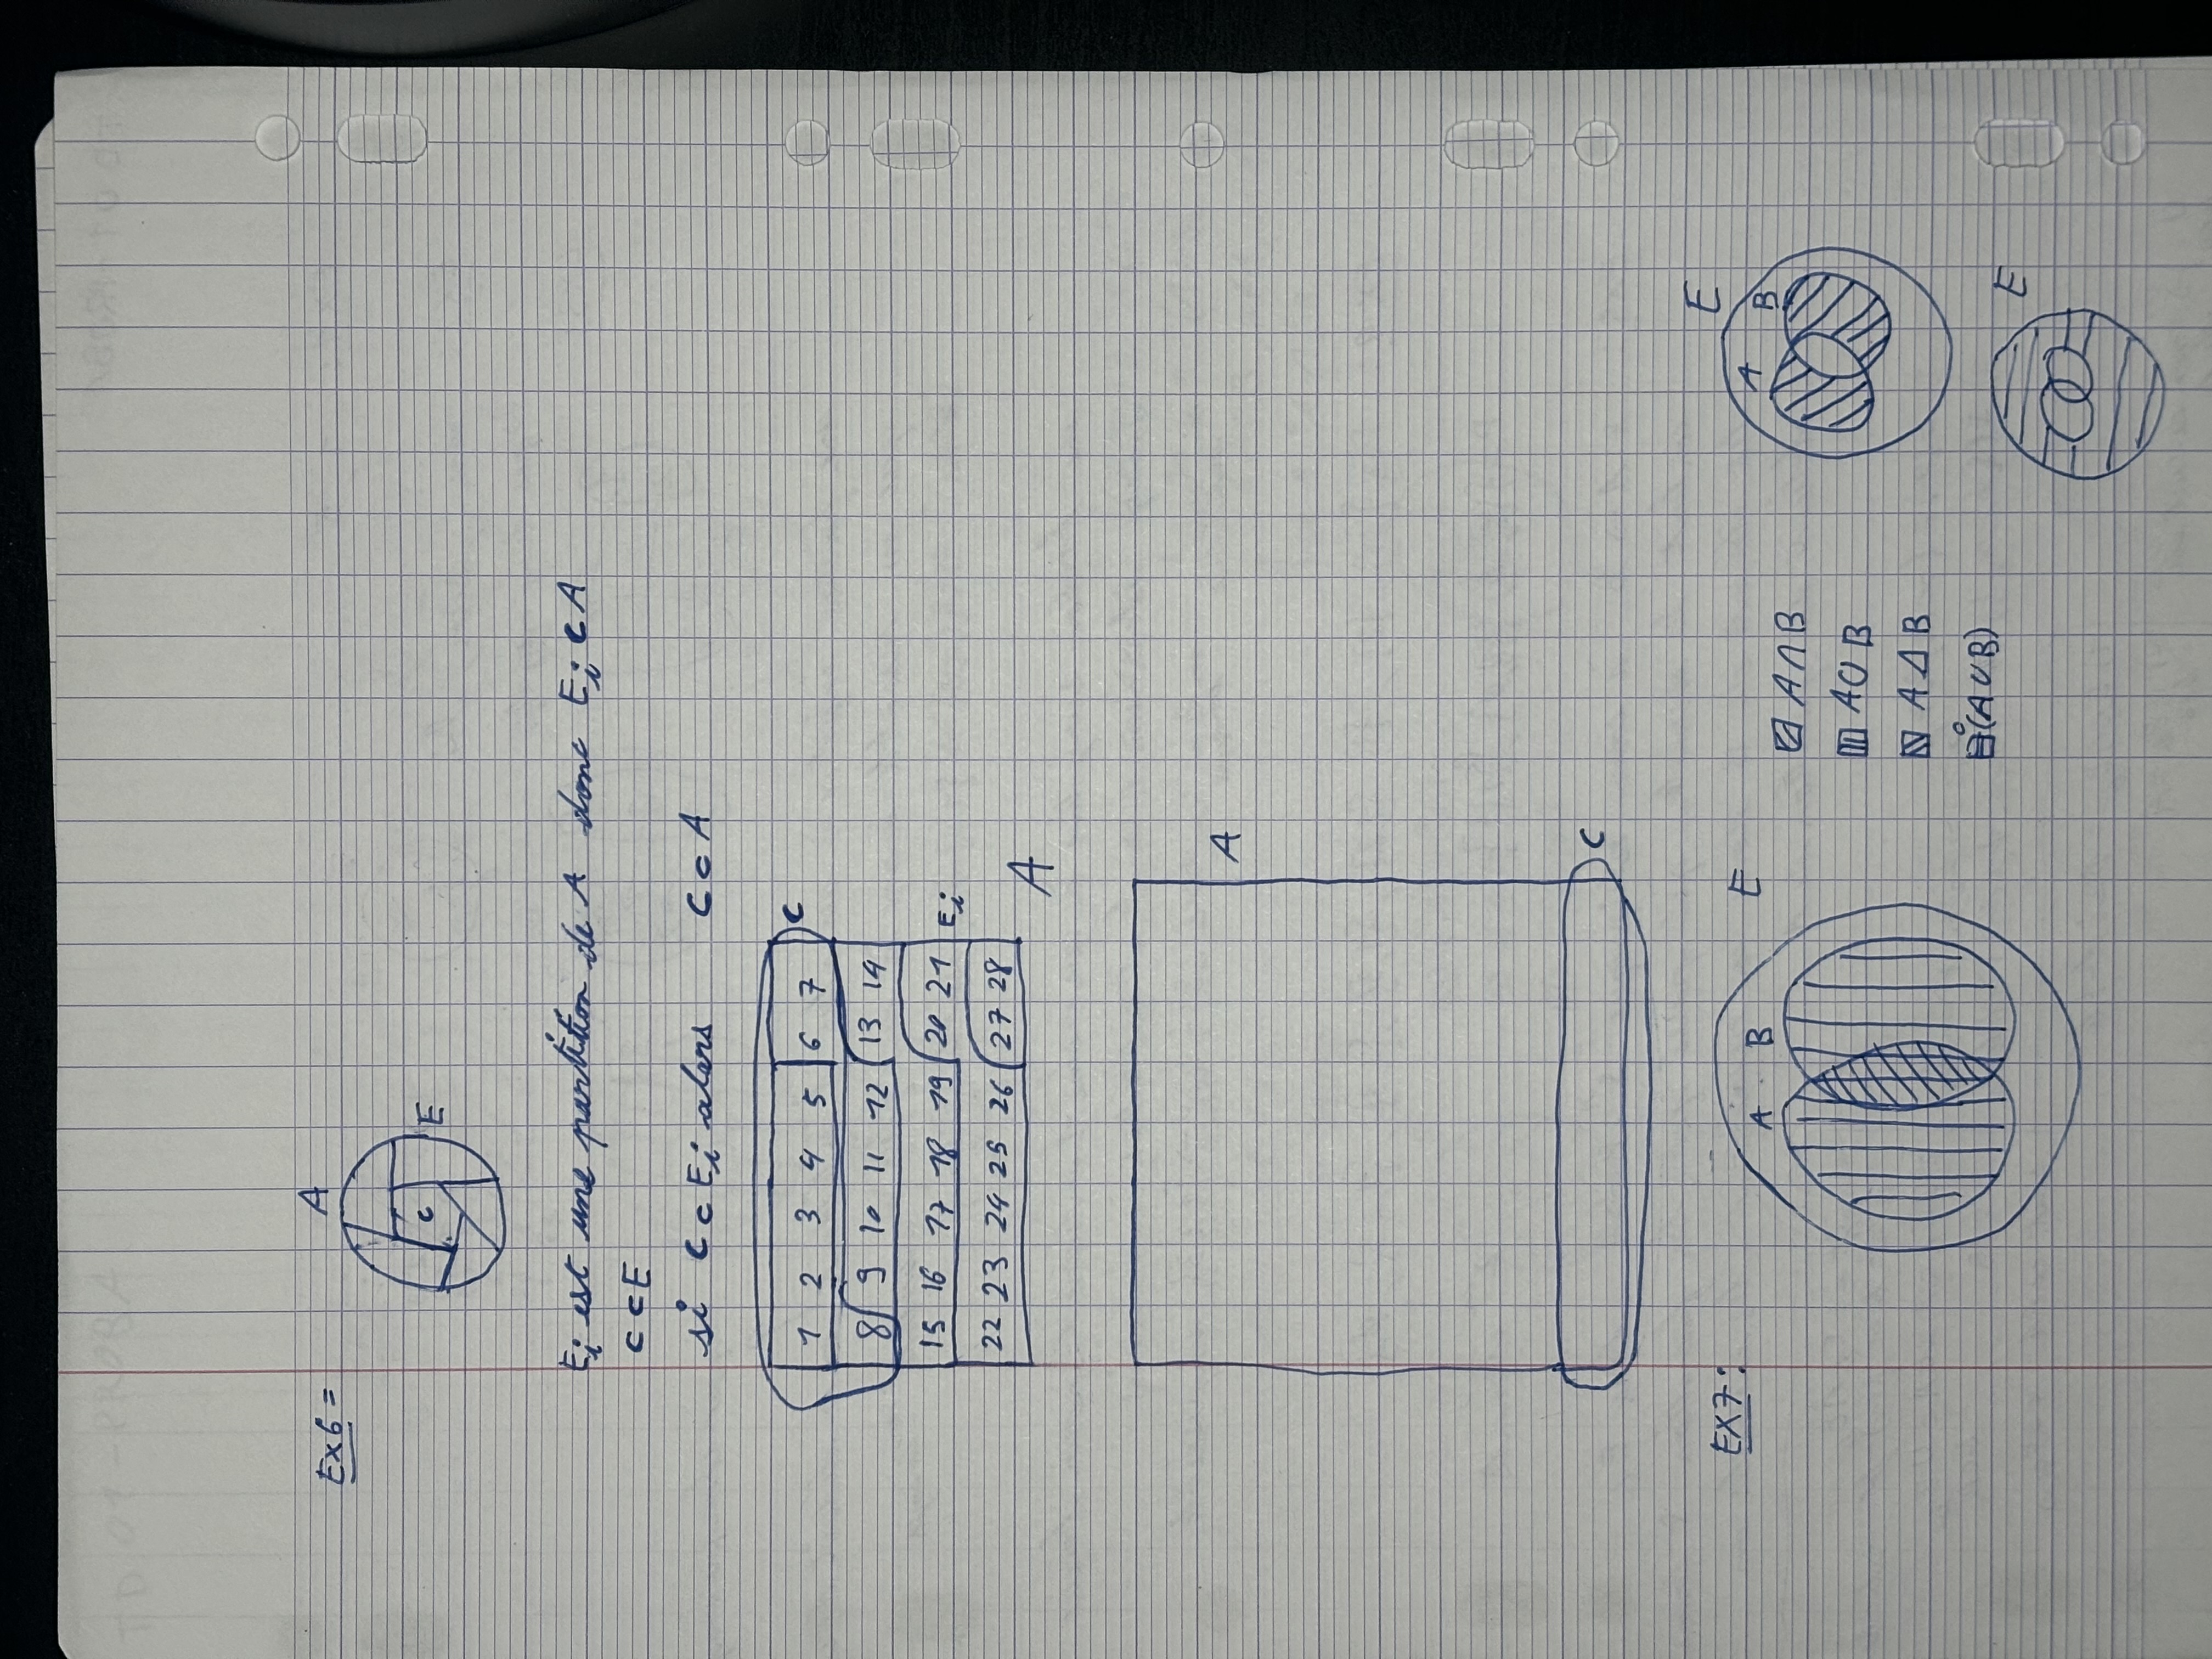 Ex6 =
A
C
E
Ei est une partition de A donc Ei ⊂ A
C ⊂ E
si C ⊂ Ei alors C ⊂ A
1 2 3 4 5 6 7 C
8 9 10 11 12 13 14
15 16 17 18 19 20 21 Ei
22 23 24 25 26 27 28
A
A
C
EX7:
A B E
A ∩ B
A ∪ B
A Δ B
(A ∪ B)
E
A B
E